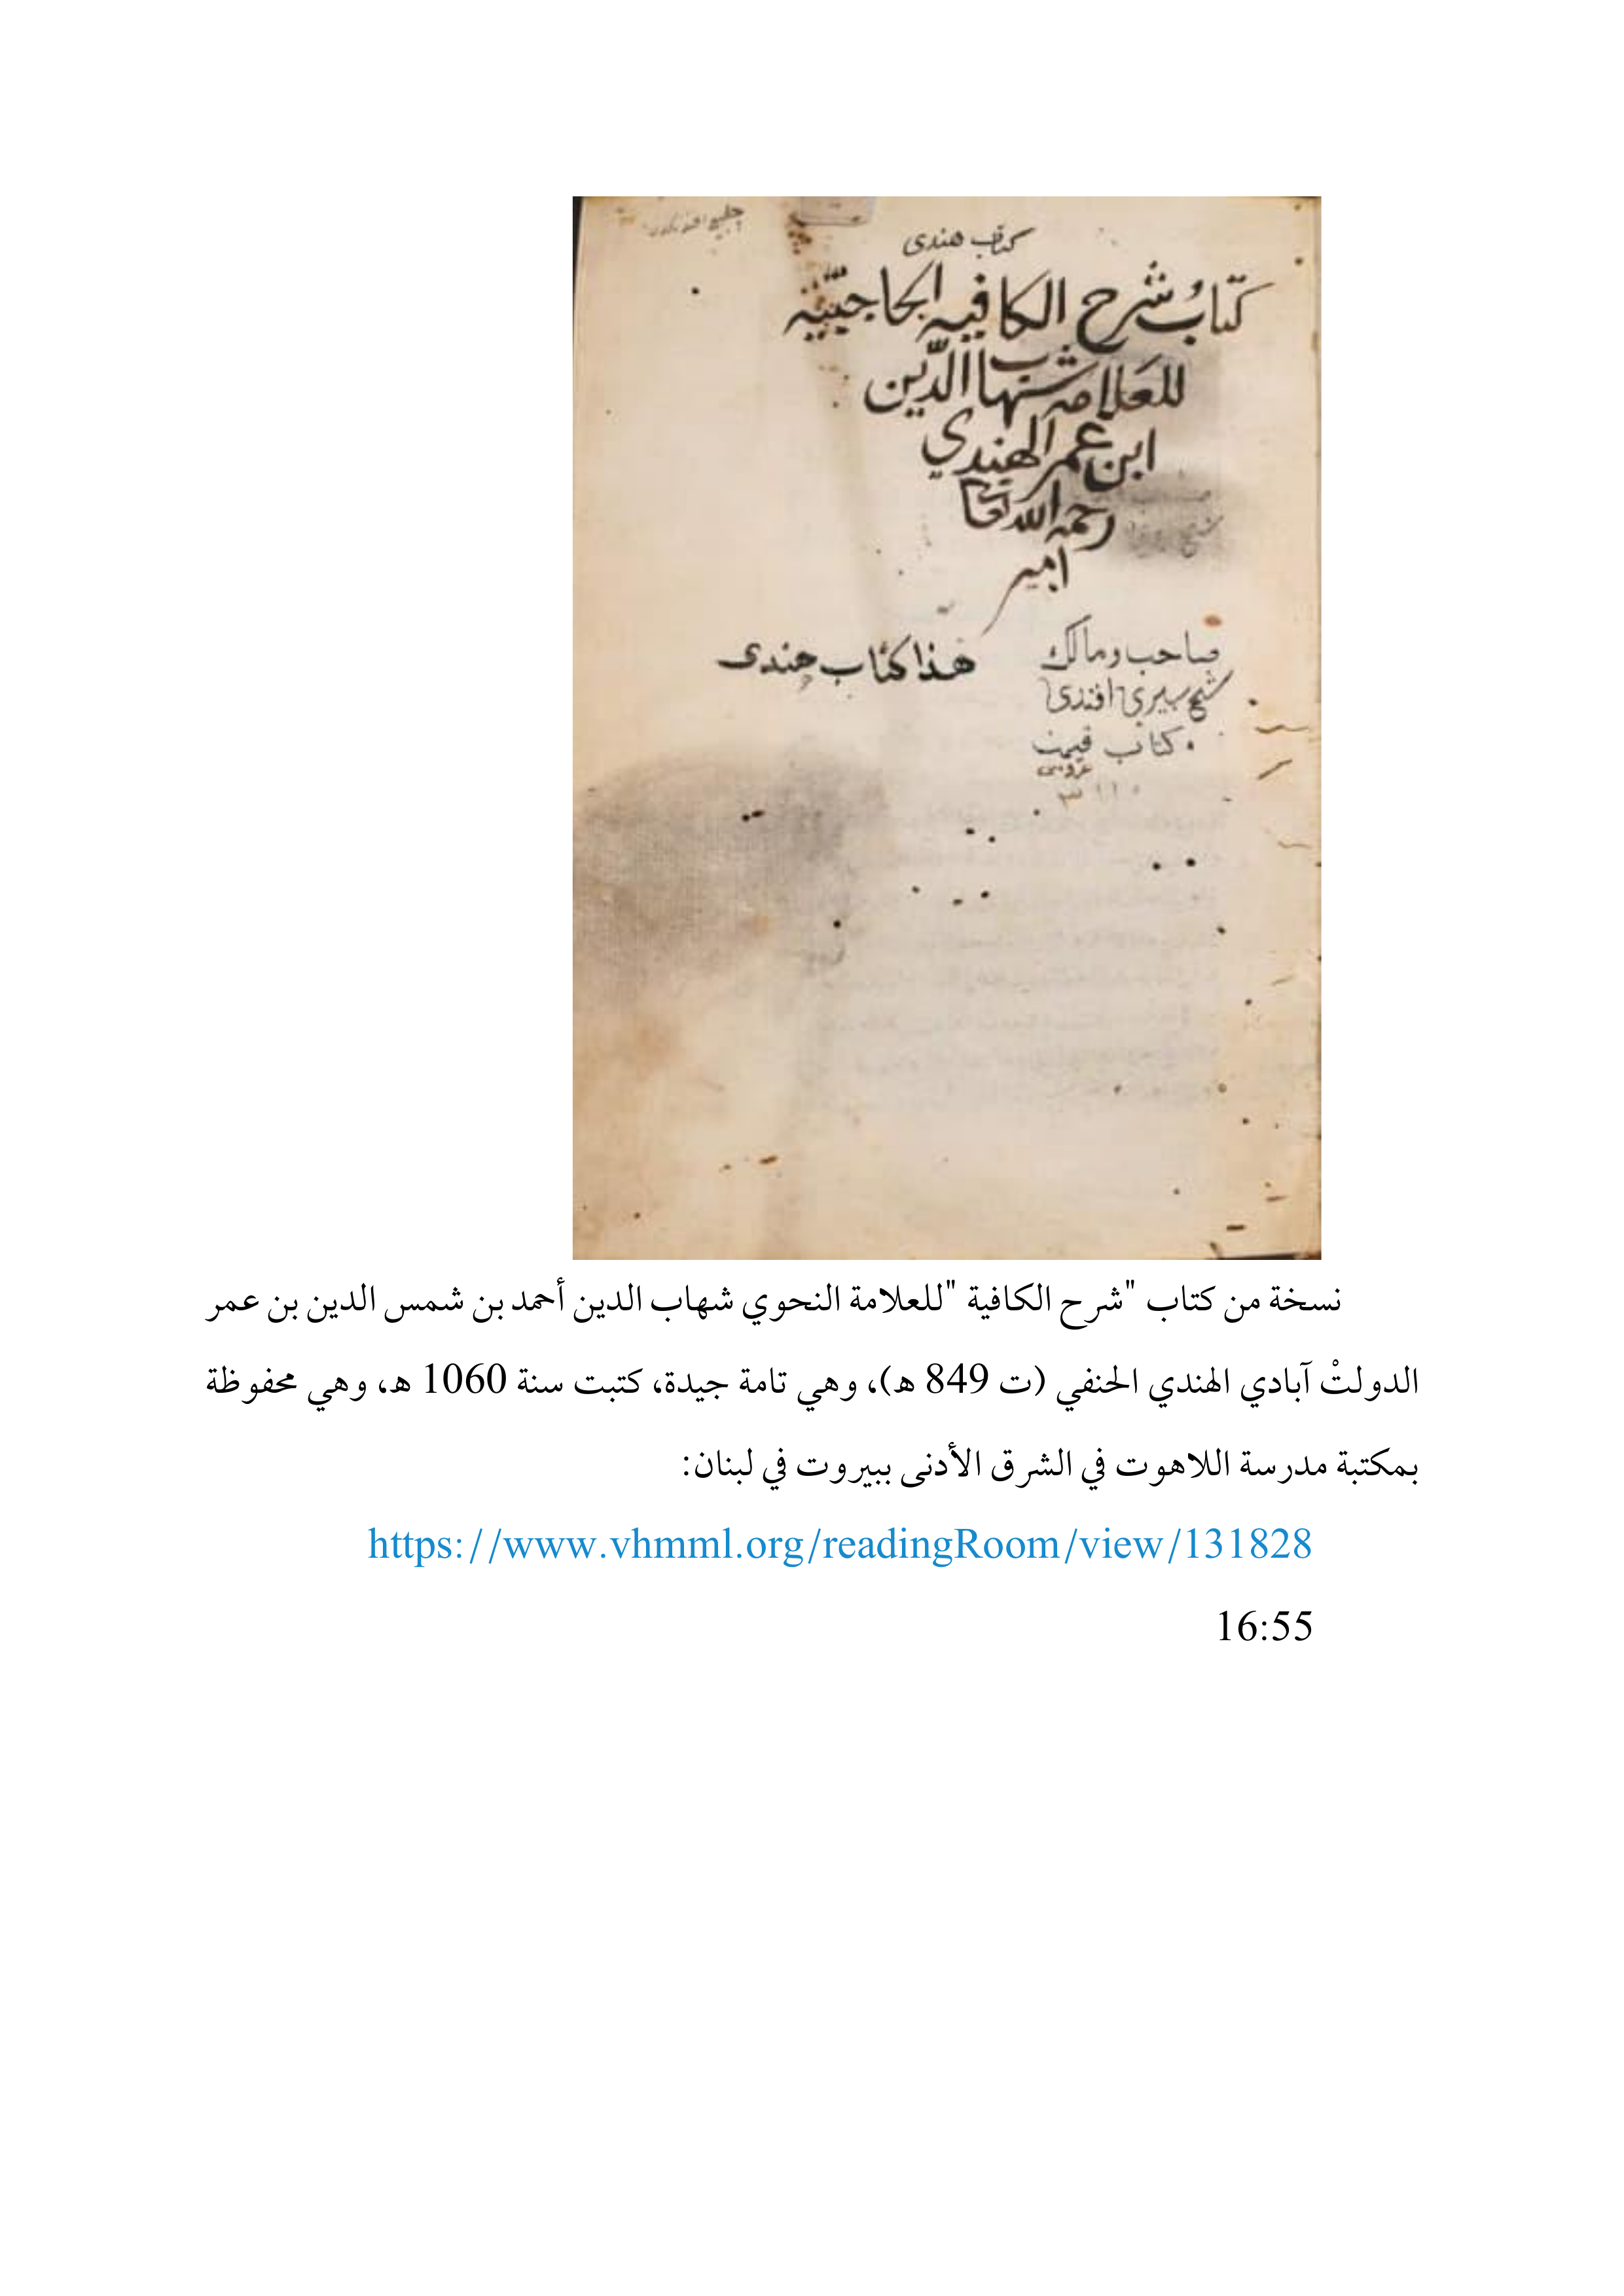 كتاب هندى
كتاب شرح الكافيه الحاجبيّه
للعلامه شهاب الدّين
ابن عمر الهندي
رحمه الله تعا
امير
صاحب ومالك
هذا كتاب هندى
شيخ سيرى افندى
كتاب قيمت
غروش
نسخة من كتاب "شرح الكافية "للعلامة النحوي شهاب الدين أحمد بن شمس الدين بن عمر
الدولتْ آبادي الهندي الحنفي (ت 849 هـ)، وهي تامة جيدة، كتبت سنة 1060 هـ، وهي محفوظة
بمكتبة مدرسة اللاهوت في الشرق الأدنى ببيروت في لبنان:
https://www.vhmml.org/readingRoom/view/131828
16:55